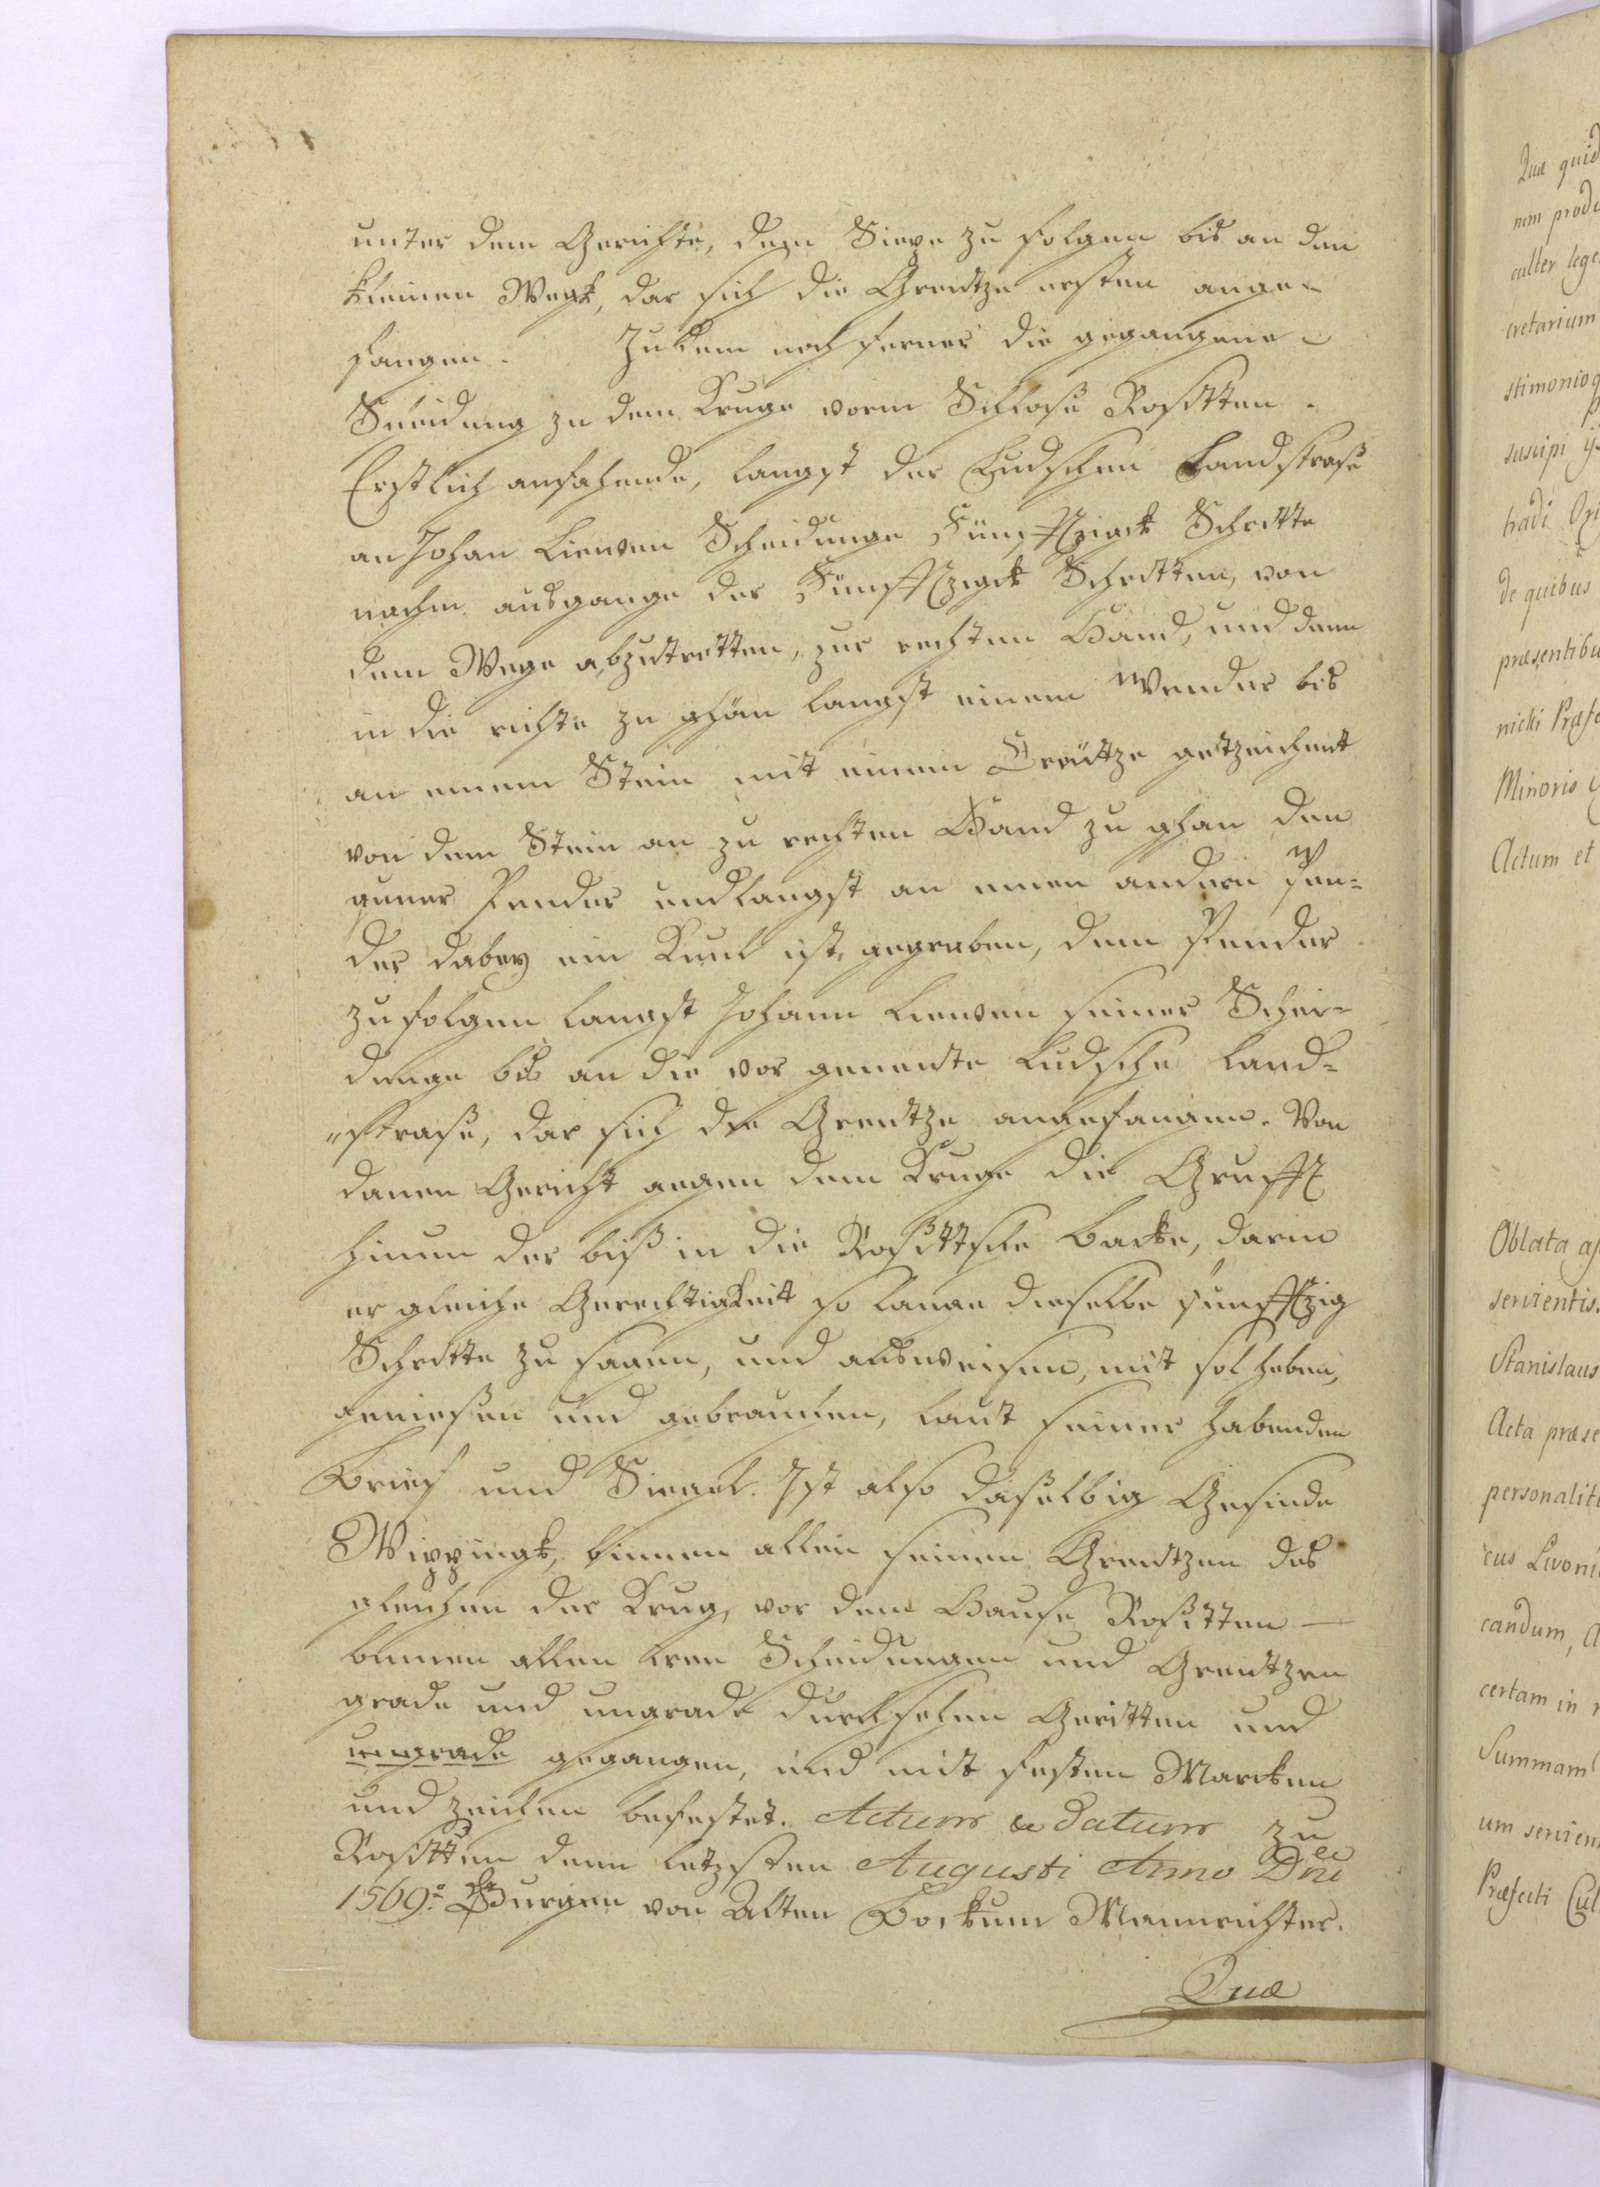 unter dem Gerichte, dem Siepe zu folgen bis an den
kleinen Wegk, dar sich die Grentze ersten ange-
fangen. Zudem noch ferner die gegangene
Scheidung zu dem Kruge vorm Schloße Rositten.
Erstlich anfahende, langst der Ludschen Landstraße
an Johan Liewen Scheidunge Fünfftzigck Schritte
nachm ausgange der Fünfftzigck Schritten, von
dem Wege abzutretten, zur rechten Hand, und dann
in die richte zu ghan langst einem Wender bis
an einem Stein mit einem Creütze getzeichent
von dem Stein an zu rechten Hand zu ghan den
und langst an einen andern
der dabey ein Kuul ist, gegraben, dem
zu folgen langst Johann Liewen seiner Schei-
dunge bis an die vor genente Ludsche Land-
straße, dar sich die Grentze angefangen. Von
danen Gericht gegen dem Kruge die Grufft
hinun der biß in die Rosittsche Backe, darin
er gleiche Gerechtigkeit so lange dieselbe fünfftzig
Schritte zu sagen, und ausweisen, mit sol haben,
genießen und gebrauchen, laut seiner habenden
Brief und Siegel. Ist also daßelbig Gesinde
Wippingk, binnen allen seinen Grentzen des
gleichen der Krug, vor dem Hause Roßitten
binnen allen iren Scheidungen und Grentzen
grade und ungrade durchsehen Geritten und
ungrade gegangen, und mit festen Marcken
und zeichen befestet. Actum & datum zu
Rositten denn letzsten Augusti Anno Dni
1569º Jurgen von Alten Bockum Mannrichter.
Quæ
Quæ
nem
aliter
cretarium
stimonio
suscipi
tradi
de quibus
præsentibu
nicki
Minoris
Actum et
Oblata
servientis
Stanislaus
Acta præse
personalit
cus Livoni
candum
certam in
Summam
um servien
Præfecti